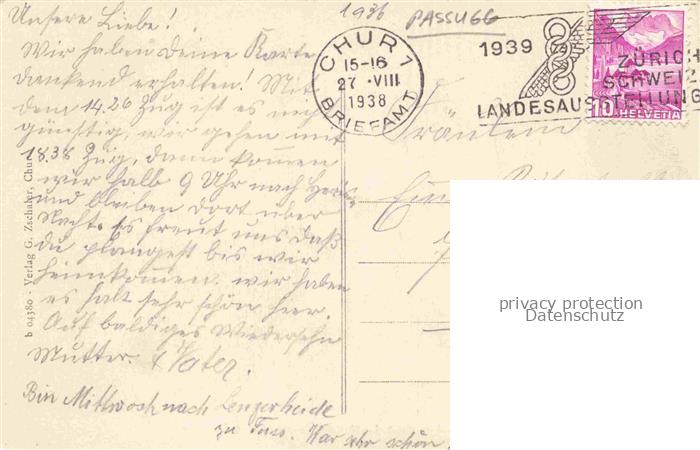 1936 PASSUGG
Unsere Liebe!
Wir haben Deine Karte
dankend erhalten! Mit
dem 14.26 Zug ist es nicht
günstig, wir gehen mit
18.38 Zug, dann kommen
wir halb 9 Uhr nach
und bleiben dort über
Nacht. Es freut uns daß
du plangest bis wir
heimkommen. wir haben
es halt sehr schön hier.
Auf baldiges Wiedersehn
Mutter. & Vater.
Bin Mittwoch nach Lenzerheide
zu Fuss. War sehr schön
CHUR 1
15-16
27.VIII
1938
BRIEFAMT
1939
ZÜRICH
SCHWEIZ.
LANDESAUSSTELLUNG
10 HELVETIA
Fräulein
b 04380 - Verlag G. Zschaler, Chur
privacy protection
Datenschutz